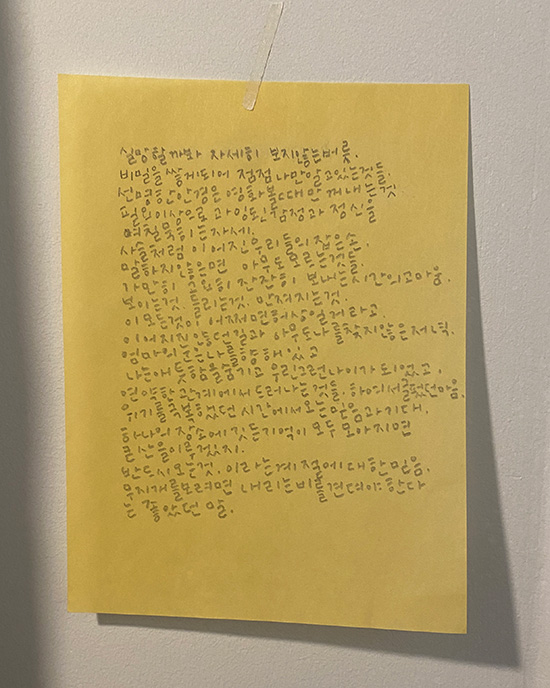 실망할까봐 자세히 보지않는버릇.
비밀을 쌓게되어 점점나만알고있는것들
선명한안경은 영화볼때만꺼내는것
필요이상으로 과잉된 감정과 정신을
사슬처럼 이어진우리들의잡은손.
말하지않으면 아무도모르는것들.
가만히 고요히 잔잔히 보내는시간의고마움.
보이는것. 들리는것. 만져지는것.
이모든것이 어쩌면허상일게라고.
아무도나를찾지않은저녁.
엄마의눈은나를향해있고
나는애틋함을숨기고 우린그런나이가되었고.
연약한관계에서드러나는것들. 하여서글펐던마음.
위기를극복했던 시간에서오는믿음과기대.
하나의장소에깃든기억이모두모아지면
반드시오는것. 이라는계절에대한믿음.
무지개를보려면 내리는비를견뎌야한다
는 좋았던 말.